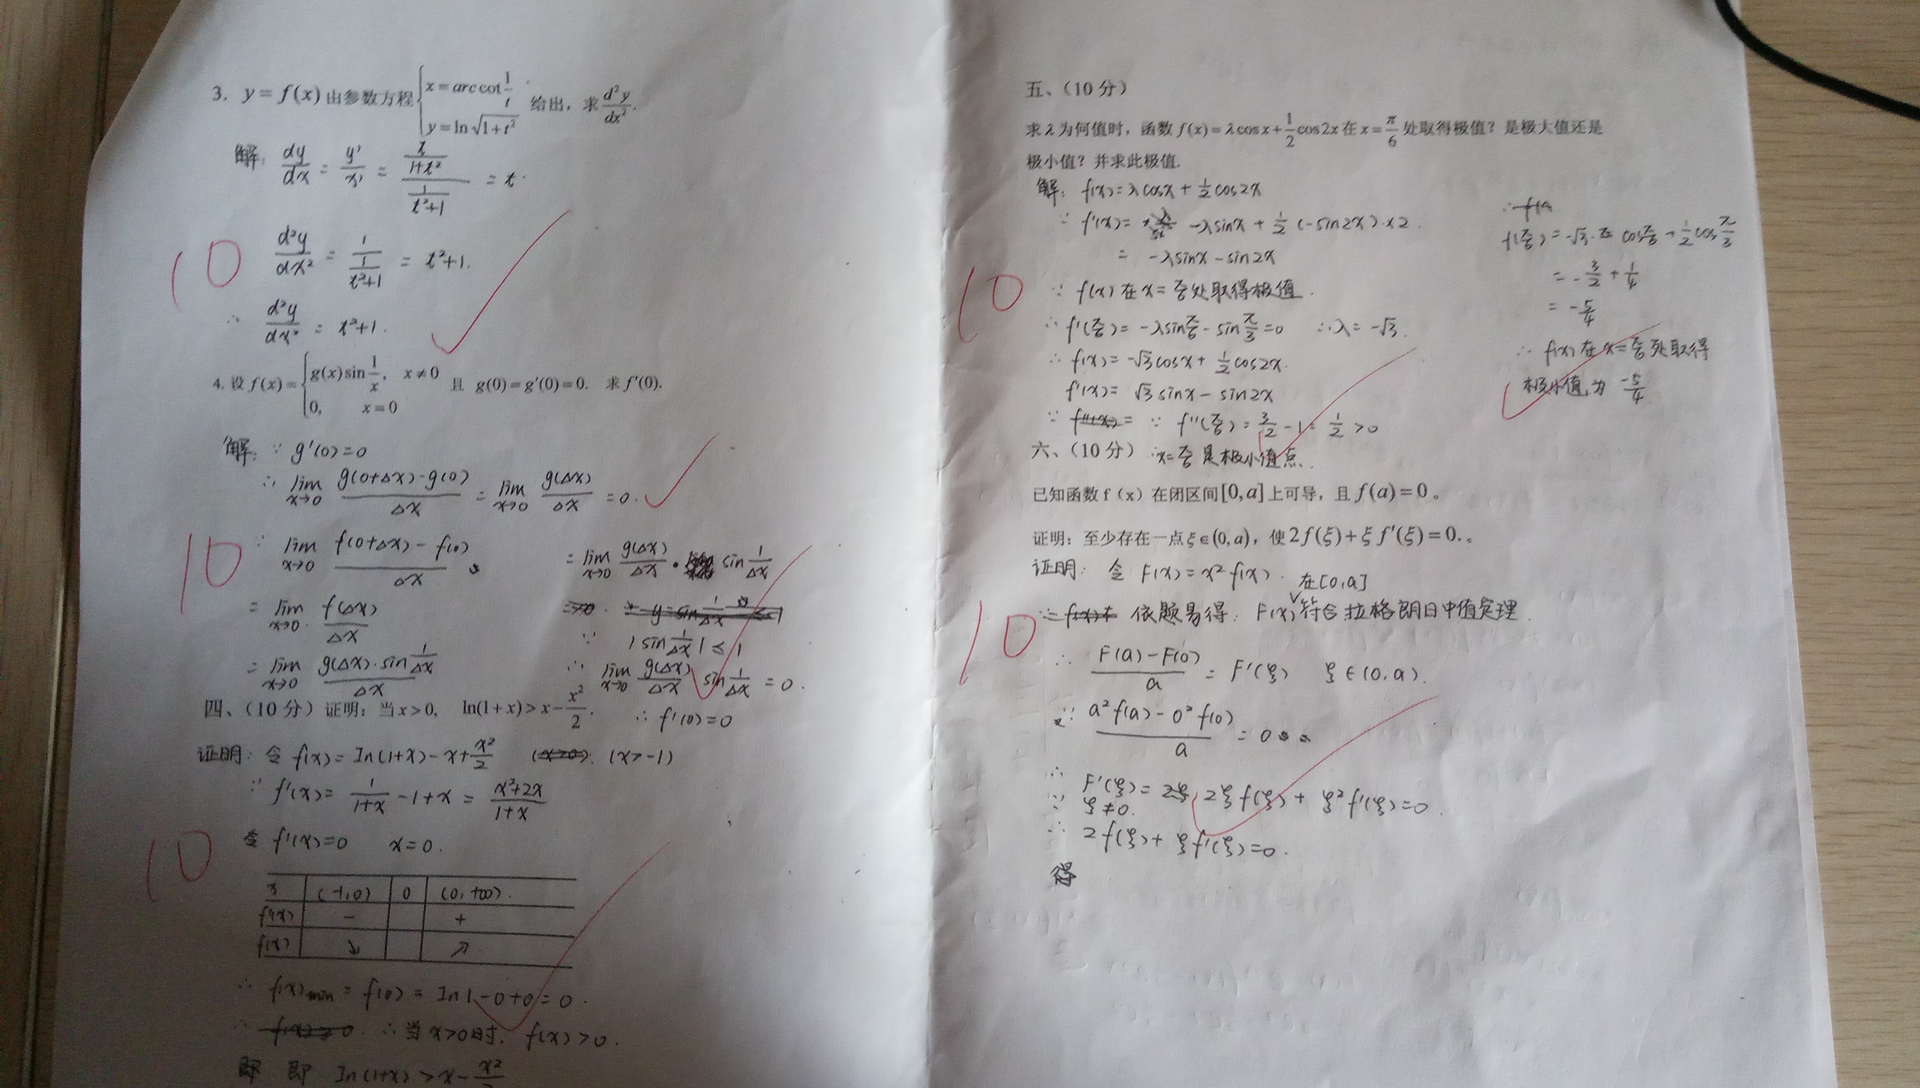 3. y = f(x) 由参数方程 { x = arc cot 1/t
y = ln √(1+t²) 给出, 求 d²y/dx².
解: dy/dx = y'/x' = (t/(1+t²))/(1/(t²+1)) = t.
10
d²y/dx² = 1/(1/(t²+1)) = t²+1.
∴ d²y/dx² = t²+1.
4. 设 f(x) = { g(x) sin 1/x, x≠0
0, x=0 且 g(0)=g'(0)=0. 求 f'(0).
解: ∵ g'(0)=0
∴ lim x→0 (g(0+Δx)-g(0))/Δx = lim x→0 g(Δx)/Δx = 0.
10
∵ lim x→0 (f(0+Δx)-f(0))/Δx
= lim x→0 f(Δx)/Δx
= lim x→0 (g(Δx)·sin 1/Δx)/Δx
= lim x→0 g(Δx)/Δx · sin 1/Δx
∵ |sin 1/Δx| ≤ 1
∴ lim x→0 g(Δx)/Δx sin 1/Δx = 0.
∴ f'(0)=0
四、(10 分) 证明: 当 x>0, ln(1+x) > x - x²/2.
证明: 令 f(x) = In(1+x)-x+x²/2 (x>-1)
∵ f'(x) = 1/(1+x) -1+x = (x²+2x)/(1+x)
令 f'(x)=0 x=0.
10
x (-1,0) 0 (0,+∞).
f'(x) - +
f(x) ↘ ↗
∴ f(x)min = f(0) = In1-0+0=0.
∴ 当 x>0时, f(x)>0.
即 In(1+x) > x - x²/2
五、(10 分)
求 λ 为何值时, 函数 f(x) = λ cos x + 1/2 cos 2x 在 x = π/6 处取得极值? 是极大值还是
极小值? 并求此极值.
解: f(x) = λcosx + 1/2 cos2x
∵ f'(x) = -λsinx + 1/2 (-sin2x)·x2.
= -λsinx - sin2x
10
∵ f(x) 在 x = π/6 处取得极值.
∴ f'(π/6) = -λsin π/6 - sin π/3 = 0 ∴ λ = -√3.
∴ f(x) = -√3 cosx + 1/2 cos2x.
f'(x) = √3 sinx - sin2x
∵ f''(π/6) = 3/2 - 1 = 1/2 > 0
∴ x = π/6 是极小值点.
f(π/6) = -√3 cos π/6 + 1/2 cos π/3
= -3/2 + 1/4
= -5/4
∴ f(x) 在 x = π/6 处取得
极小值, 为 -5/4
六、(10 分)
已知函数 f (x) 在闭区间[0,a]上可导, 且 f(a)=0。
证明: 至少存在一点 ξ∈(0,a), 使 2f(ξ)+ξ f'(ξ)=0.。
证明: 令 F(x) = x² f(x).
依题易得: F(x) 在[0,a] 符合拉格朗日中值定理.
10
∴ (F(a)-F(0))/a = F'(ξ) ξ∈(0,a).
∵ (a²f(a)-0²f(0))/a = 0
∴ F'(ξ) = 2ξf(ξ) + ξ²f'(ξ) = 0.
∵ ξ≠0.
∴ 2f(ξ) + ξf'(ξ) = 0.